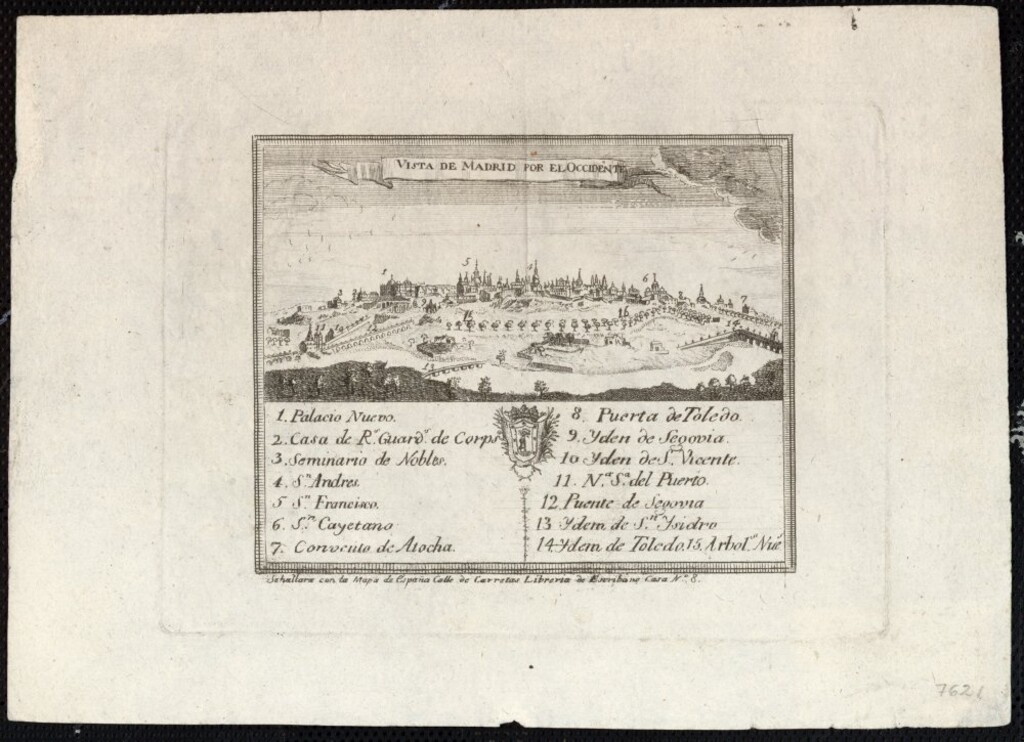 VISTA DE MADRID POR EL OCCIDENTE
1. Palacio Nuevo.
2. Casa de R.ˢ Guard.ˢ de Corps
3. Seminario de Nobles.
4. S.ⁿ Andres.
5 S.ⁿ Francisco.
6. S.ⁿ Cayetano
7. Convento de Atocha.
8. Puerta de Toledo.
9. Yden de Segovia.
10 Yden de S.ⁿ Vicente.
11. N.ª S.ª del Puerto.
12. Puente de Segovia
13 Ydem. de S.ⁿ Ysidro
14 Ydem de Toledo. 15. Arbol.ˢ Nue
Sehallara con la Mapa de España Calle de Carretas Libreria de Escribano Casa N.º 8.
762